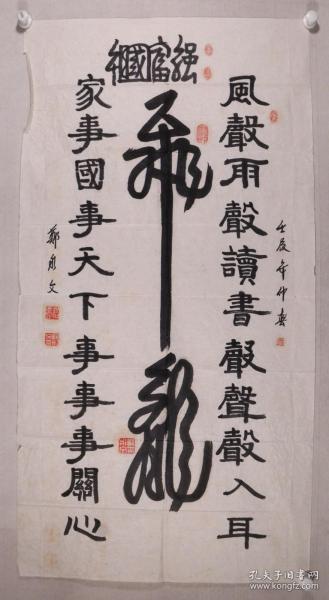 强富國
壬辰年仲春
風聲雨聲讀書聲聲聲入耳
飛龍
家事國事天下事事事關心
鄭文
孔夫子旧书网